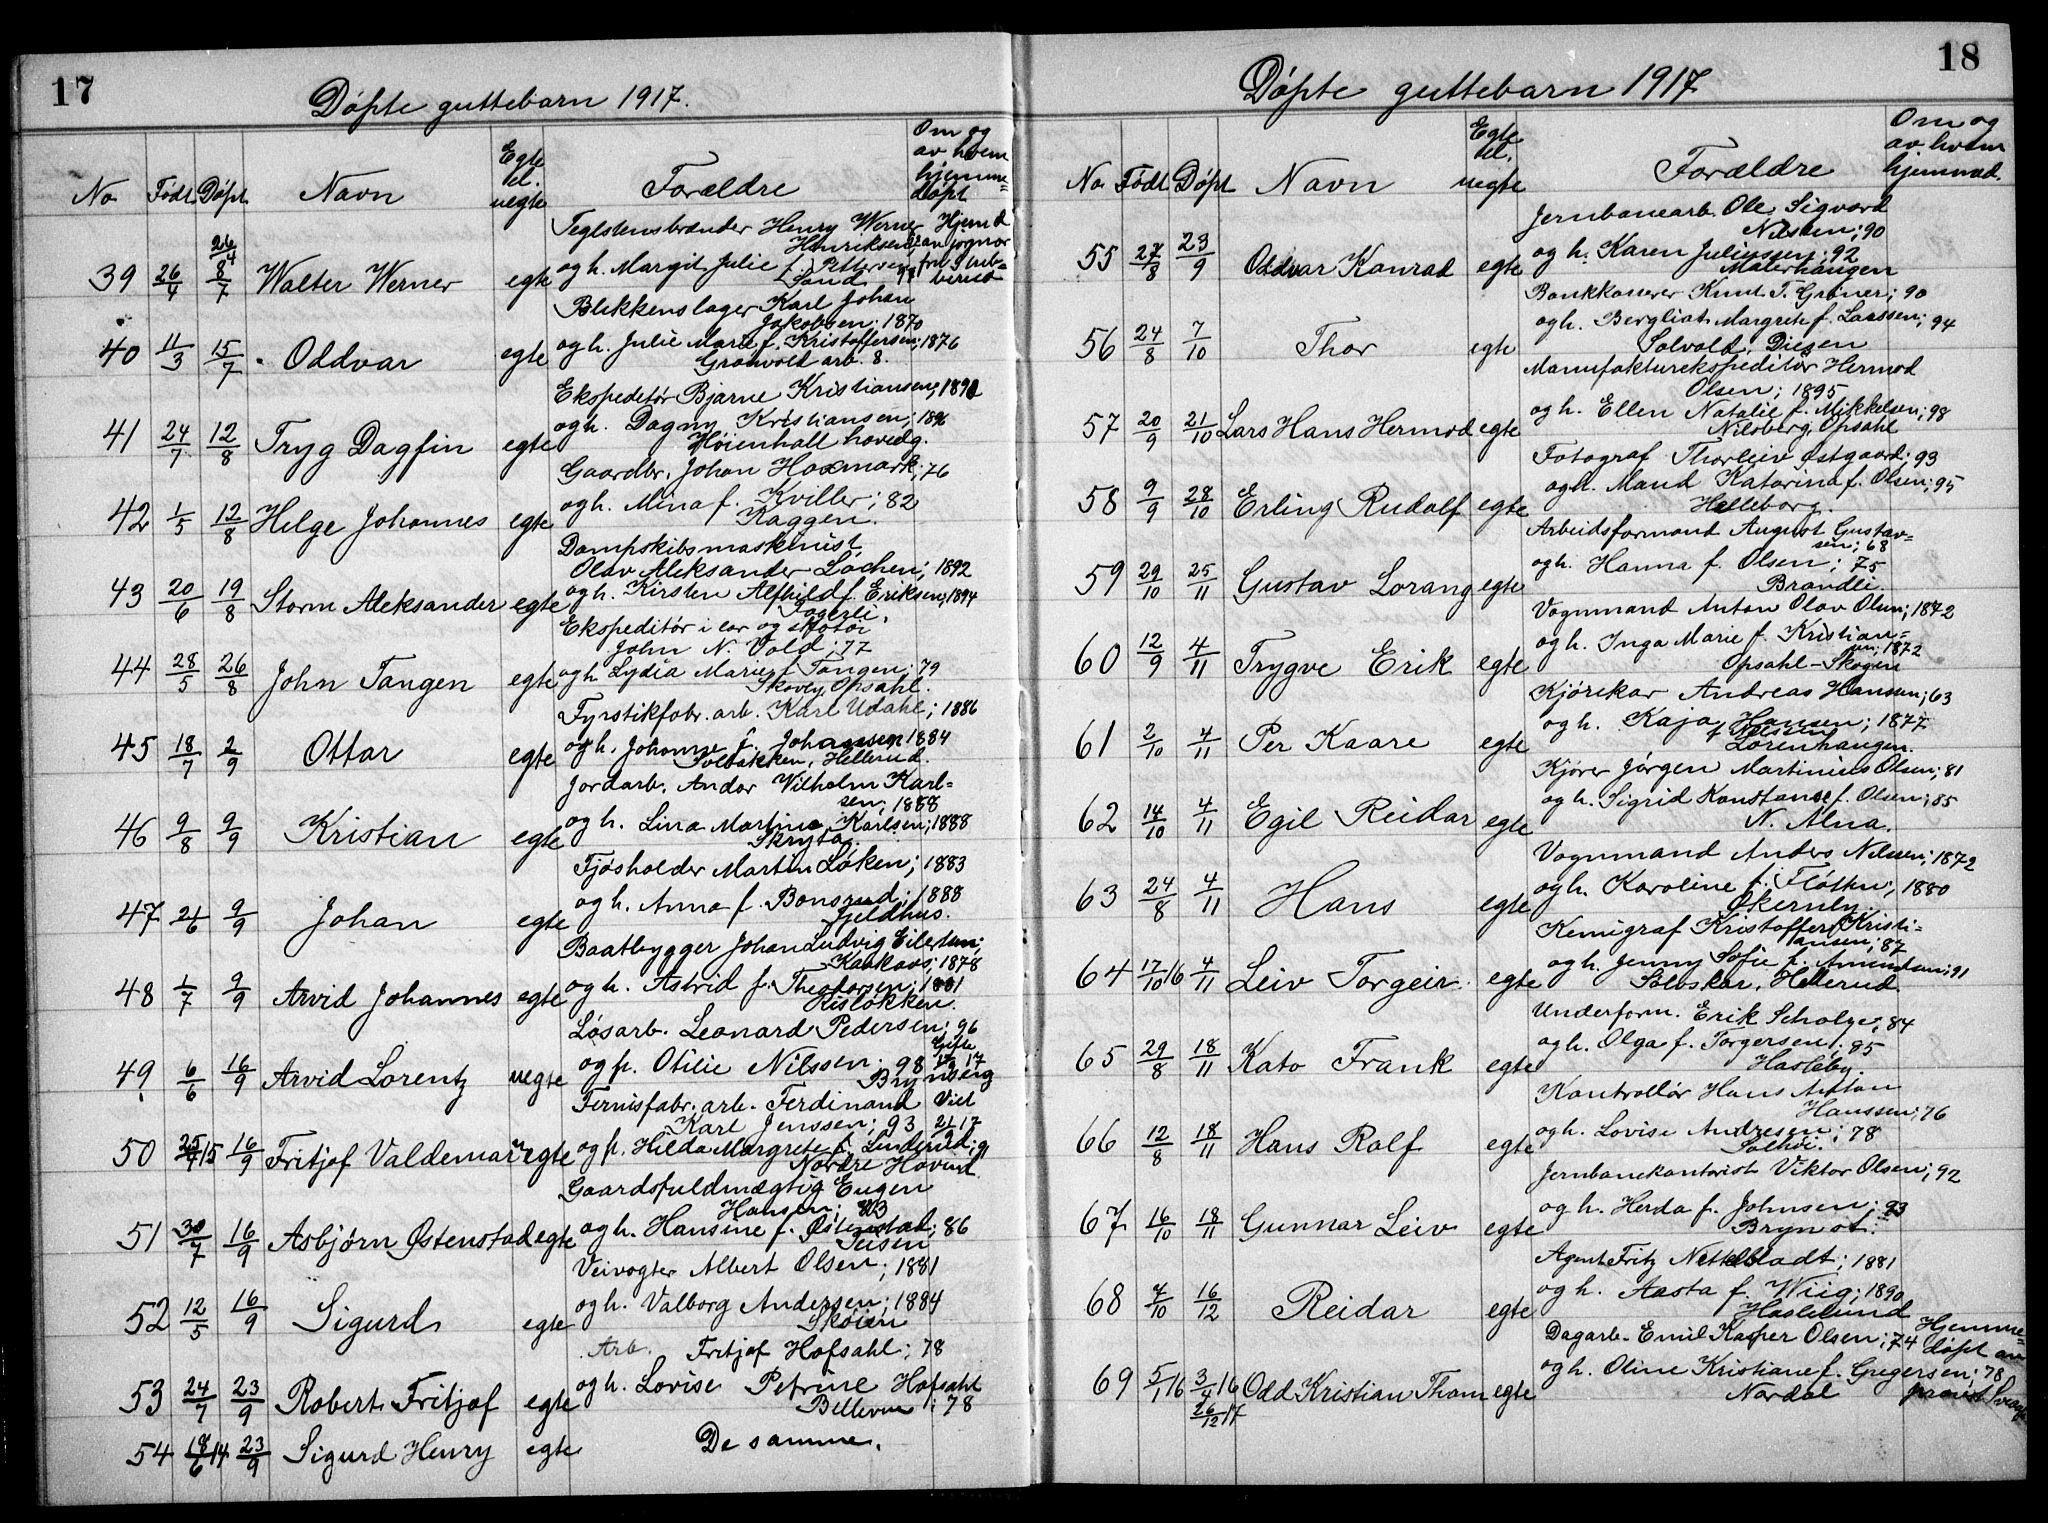 17
Döpte guttebarn 1917.
No Födt Döpt Navn Egte el. uegte Forældre Om og av hvem hjemme=döpt
39 26/4 26/4 8/7 Walter Werner egte Teglstensbrænder Henry Werner Henriksen Hjemd
og h. Margit Julie f. Pettersen
40 11/3 15/7 Oddvar egte Blikkenslager Karl Johan
Jakobsen; 1870
og h. Julie Marie f. Kristoffersen; 1876
Grönvold arb. 8.
41 24/7 12/8 Tryg Dagfin egte Ekspeditör Bjarne Kristiansen; 1890
og h. Dagny Kristiansen; 1896
Höienhall hovedg.
42 1/5 12/8 Helge Johannes egte Gaardbr. Johan Hoxmark; 76
og h. Mina f. Kviller; 82
Kaggen.
43 20/6 19/8 Storm Aleksander egte Dampskibsmaskinist
Olav Aleksander Lochen; 1892
og h. Kirsten Alfhild f. Eriksen; 1894
Fagerli.
44 28/5 26/8 John Tangen egte Ekspeditör i
John N. Vold; 77
og h. Lydia Marie f. Tangen; 79
Skovly, Opsahl.
45 18/7 2/9 Ottar egte Fyrstikfabr. arb. Karl Udahl; 1886
og h. Johanne f. Johanssen 1884
Solbakken, Hellerud.
46 9/8 9/9 Kristian egte Jordarb. Andor Wilhelm Karl=
sen; 1888
og h. Lina Martina Karlsen; 1888
Skryta.
47 21/6 9/9 Johan egte Fjösholder Martin Löken; 1883
og h. Anna f. Bonsrud; 1888
Fjeldhus.
48 1/7 9/9 Arvid Johannes egte Baatbygger Johan Ludvig Eilertsen;
1878
og h. Astrid f. Theodorsen; 1881
Risløkken.
49 6/6 16/9 Arvid Lorentz uegte Lösarb. Leonard Pedersen; 96
og p. Otilie Nilssen; 98 Gifte
Brynsberg
50 15 16/9 Fritjof Valdemar uegte Fernisfabr. arb. Ferdinand Viet
Karl Jenssen; 93
og p. Hilda Margrete f. Linderud; 91
Nordre Hovind
51 30/7 16/9 Asbjörn Østenstad egte Gaardsfuldmægtig Eugen
Hansen; 83
og h. Hansine f. Østenstad; 86
Teisen
52 12/5 16/9 Sigurd egte Veivogter Albert Olsen; 1881
og h. Valborg Andersen; 1884
Skøien
53 24/7 23/9 Robert Fritjof egte Arb. Fritjof Hofsahl; 78
og h. Lovise Petrine Hofsahl
Bellevue; 78
54 18/6 14 23/9 Sigurd Henry egte De samme.
18
Döpte guttebarn 1917
No Födt Döpt Navn Egte el. uegte Forældre Om og av hvem hjemmed.
55 27/8 23/9 Oddvar Konrad egte Jernbanearb. Ole Sigvard
Nilsen; 90
og h. Karen Juliussen; 92
Malerhaugen
56 24/8 7/10 Thor egte Bankkasserer Knut T. Gröner; 90
og h. Bergliot Margrete f. Larssen; 94
Solvold, Disen
57 20/9 21/10 Lars Hans Hermod egte Manufakturekspeditör Hermod
Olsen; 1895
og h. Ellen Natalie f. Mikkelsen; 98
Nilsberg, Opsahl
58 9/9 28/10 Erling Rudolf egte Fotograf Thorleiv Østgaard; 93
og h. Maud Katarina f. Olsen; 95
Helleborg.
59 29/10 25/11 Gustav Lorang egte Arbeidsformand August Gustav=
sen; 68
og h. Hanna f. Olsen; 75
Brandli
60 12/9 4/11 Trygve Erik egte Vognmand Anton Olav Olsen; 1872
og h. Inga Marie f. Kristian=
sen; 1872
Opsahl-Skogen
61 2/10 4/11 Per Kaare egte Kjörekar Andreas Hansen; 63
og h. Kaja Hansen; 1877
f. Nilsen
Lørenhaugen.
62 14/10 4/11 Egil Reidar egte Kjörer Jörgen Martinius Olsen; 81
og h. Sigrid Konstanse f. Olsen; 85
N. Alna.
63 24/8 4/11 Hans egte Vognmand Anders Nilsen; 1872
og h. Karoline f. Flöthe; 1880
Økernly.
64 17/10 16 4/11 Leiv Torgeir egte Kemigraf Kristoffer Kristi=
ansen; 87
og h. Jenny Sofie f. Amundsen; 91
Solbskar, Hellerud.
65 29/8 18/11 Kato Frank egte Underform. Erik Scholze; 84
og h. Olga f. Torgersen; 85
Hasleby.
66 12/8 18/11 Hans Ralf egte Kontrollör Hans Anton
Hanssen; 76
og h. Lovise Andresen; 78
Solhøi.
67 16/10 18/11 Gunnar Leiv egte Jernbanekontorist Viktor Olsen; 92
og h. Herda f. Johnsen; 93
Bryn st.
68 7/10 16/12 Reidar egte Agent Fritz Nettelbladt; 1881
og h. Aasta f. Wiig; 1890
Haslelund
69 5/1 16 3/4 16 26/12 17 Odd Kristian Thom egte Dagarb. Emil Kasper Olsen; 74 Hjemme=
döpt av
og h. Oline Kristiane f. Gregersen; 78
Nordal